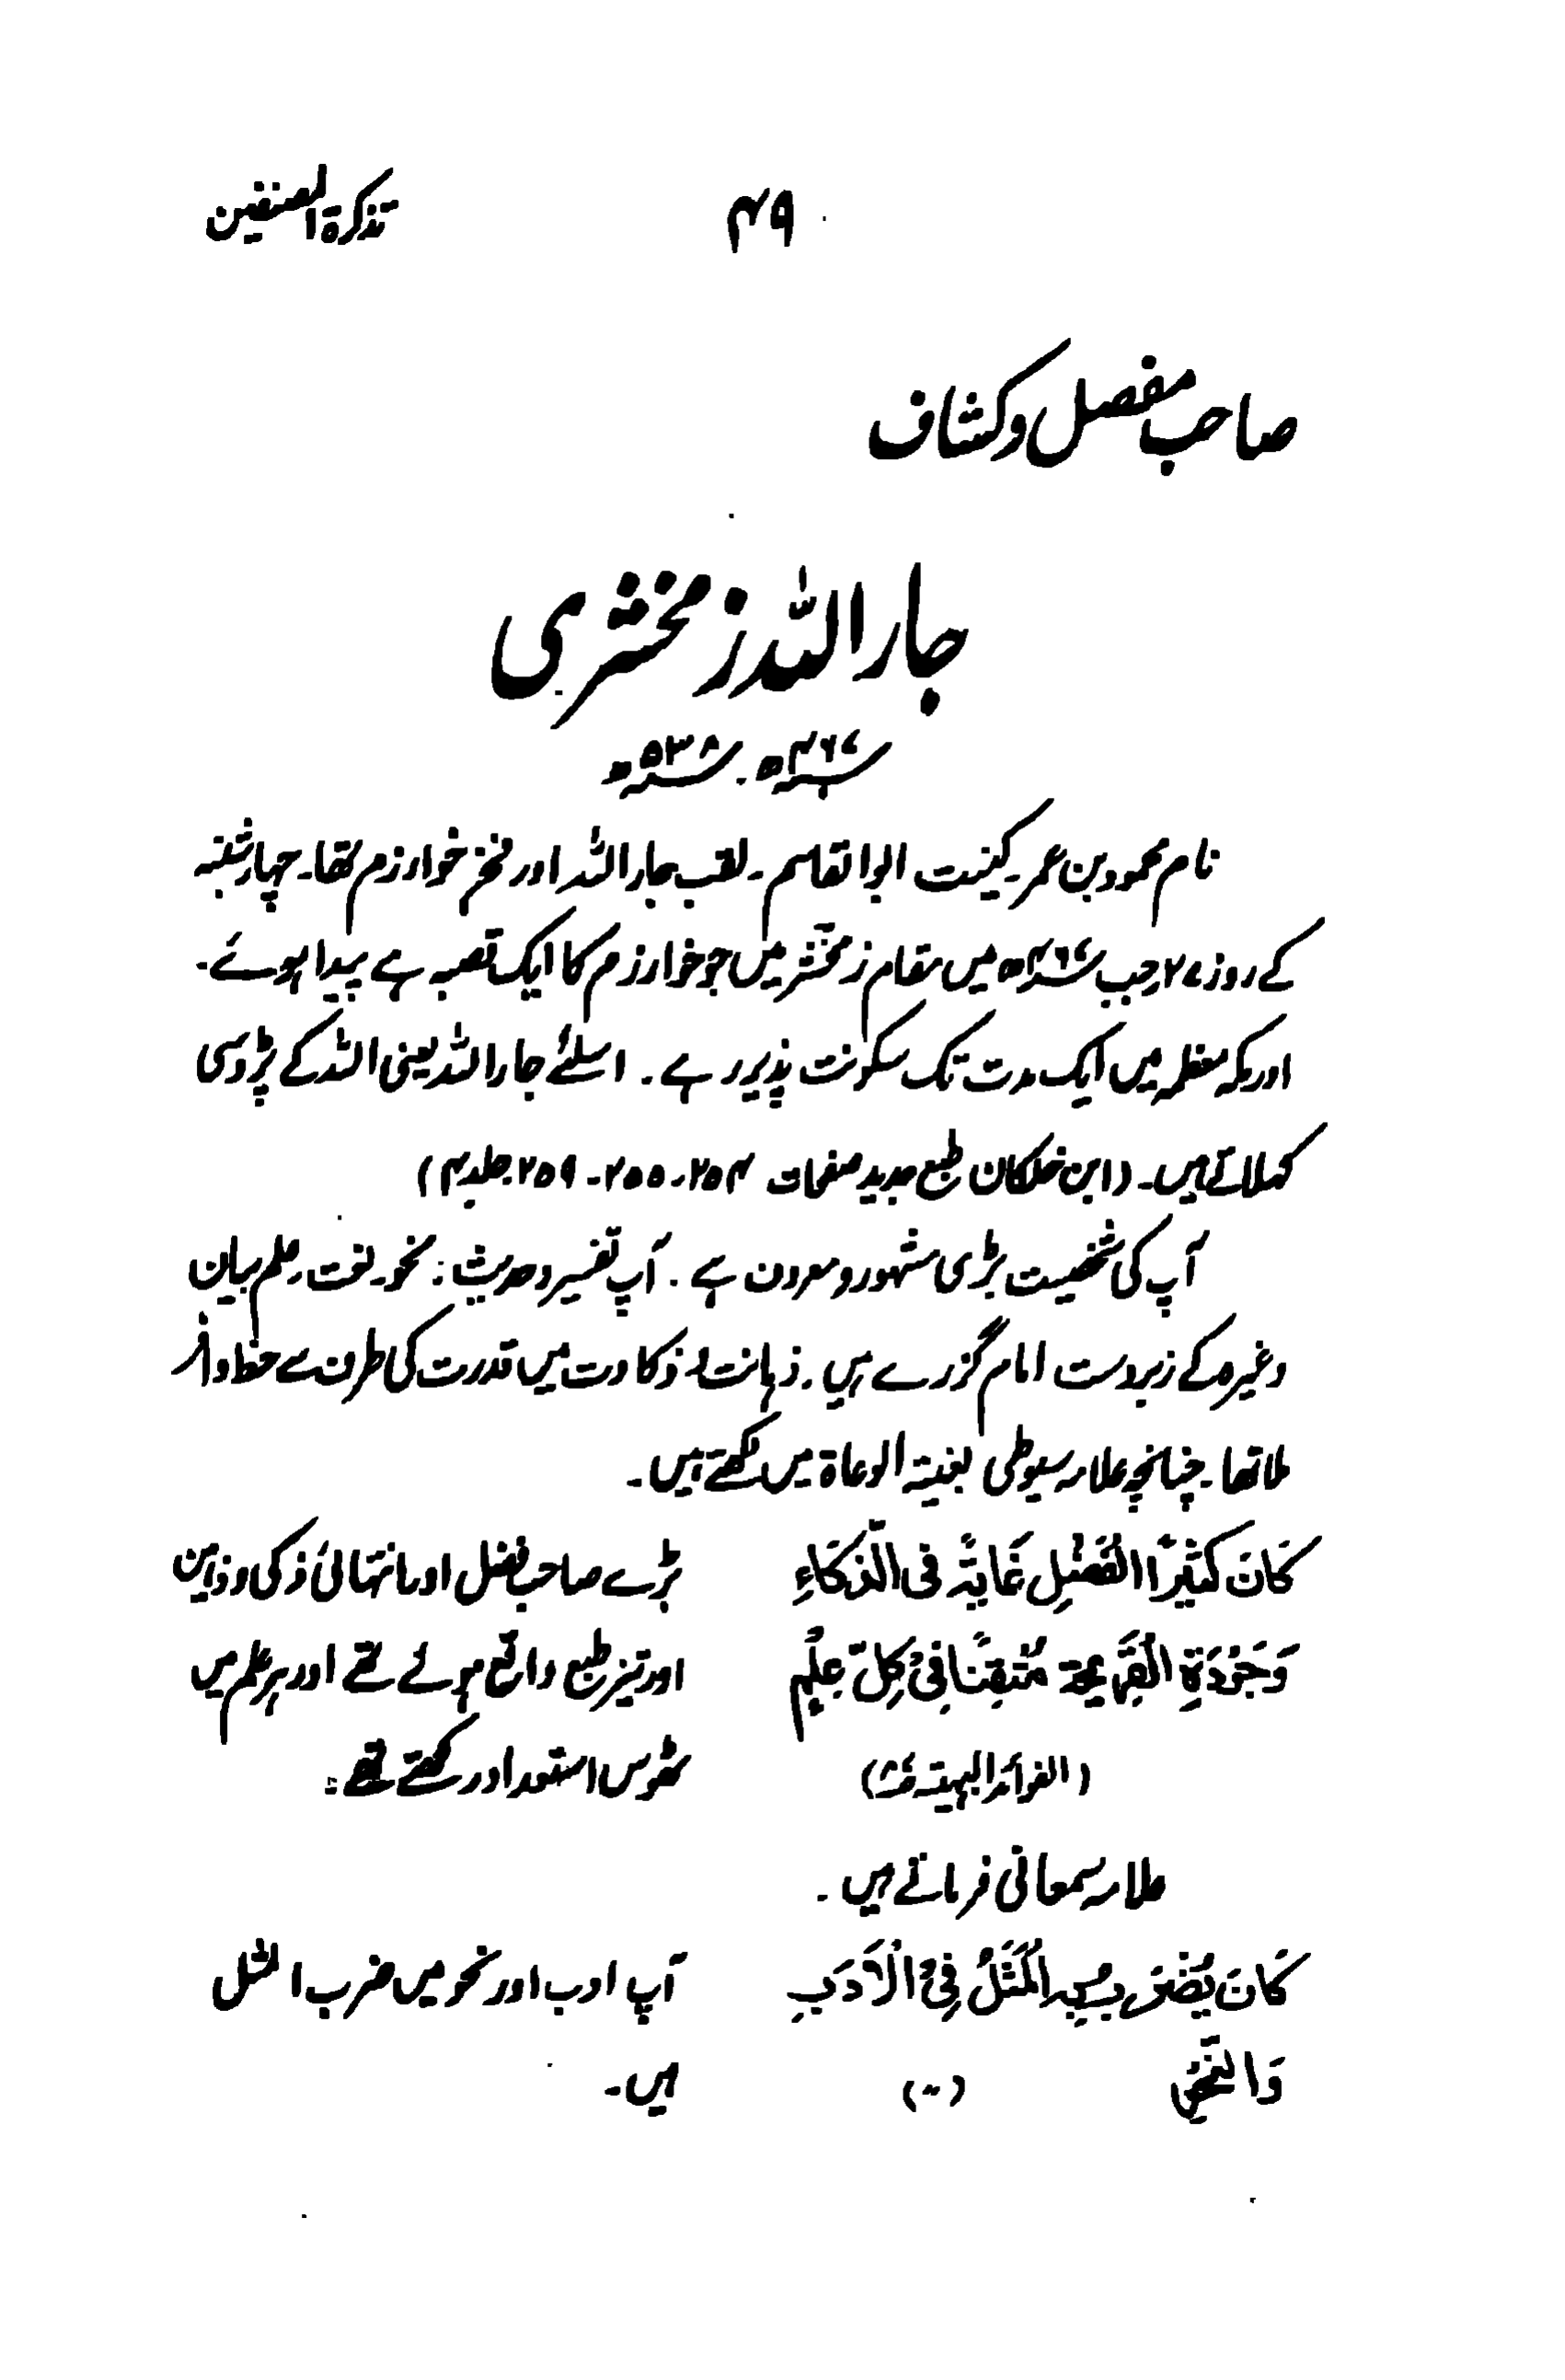 تذکرۃ المصنفین
۴۹
صاحب مفصل و کشاف
جار اللہ زمخشری
۴۶۷ھ - ۵۳۸ھ
نام محمود بن عمر۔ کینت ابوالقاسم۔ لقب جار اللہ اور فخز خوارزم تھا۔ چہار شنبہ
کے روز ۲۷ رجب ۴۶۷ھ میں مقام زمخشر میں جو خوارزم کا ایک قصبہ ہے پیدا ہوئے۔
اور مکہ معظمہ میں ایک مدت تک سکونت پذیر رہے۔ اسلئے جار اللہ یعنی اللہ کے پڑوسی
کہلاتے ہیں۔ (ابن خلکان طبع جدید صفحات ۲۵۴، ۲۵۵۔ ۲۵۹ جلد ۴)
آپ کی شخصیت بڑی مشہور و معروف ہے۔ آپ تفسیر و حدیث، نحو۔ لغت۔ علم بیان
وغیرہ کے زبردست امام گزرے ہیں۔ ذہانت و ذکاوت میں قدرت کی طرف سے حظ وافر
ملا تھا۔ چنانچہ علامہ سیوطی بغیتہ الوعاة میں لکھتے ہیں۔
كَانَ كَثِيْرَ الْفَضْلِ غَايَةً فِى الذَّكَاءِ
وَجَوْدَةِ الْقَرِيحَة مُتْقِنًا فِىْ كُلِّ عِلْمٍ
(الفوائد البهية)
بڑے صاحب فضل اور انتہائی ذکی و ذہین
اور تیز طبع واقع ہوئے تھے اور ہر علم میں
ٹھوس استعداد رکھتے تھے۔
علامہ سمعانی فرماتے ہیں۔
كَانَ يُضْرَبُ بِهِ الْمَثَلُ فِىْ الْاَدَبِ
وَالنَّحْوِ (〃)
آپ ادب اور نحو میں ضرب المثل
ہیں۔